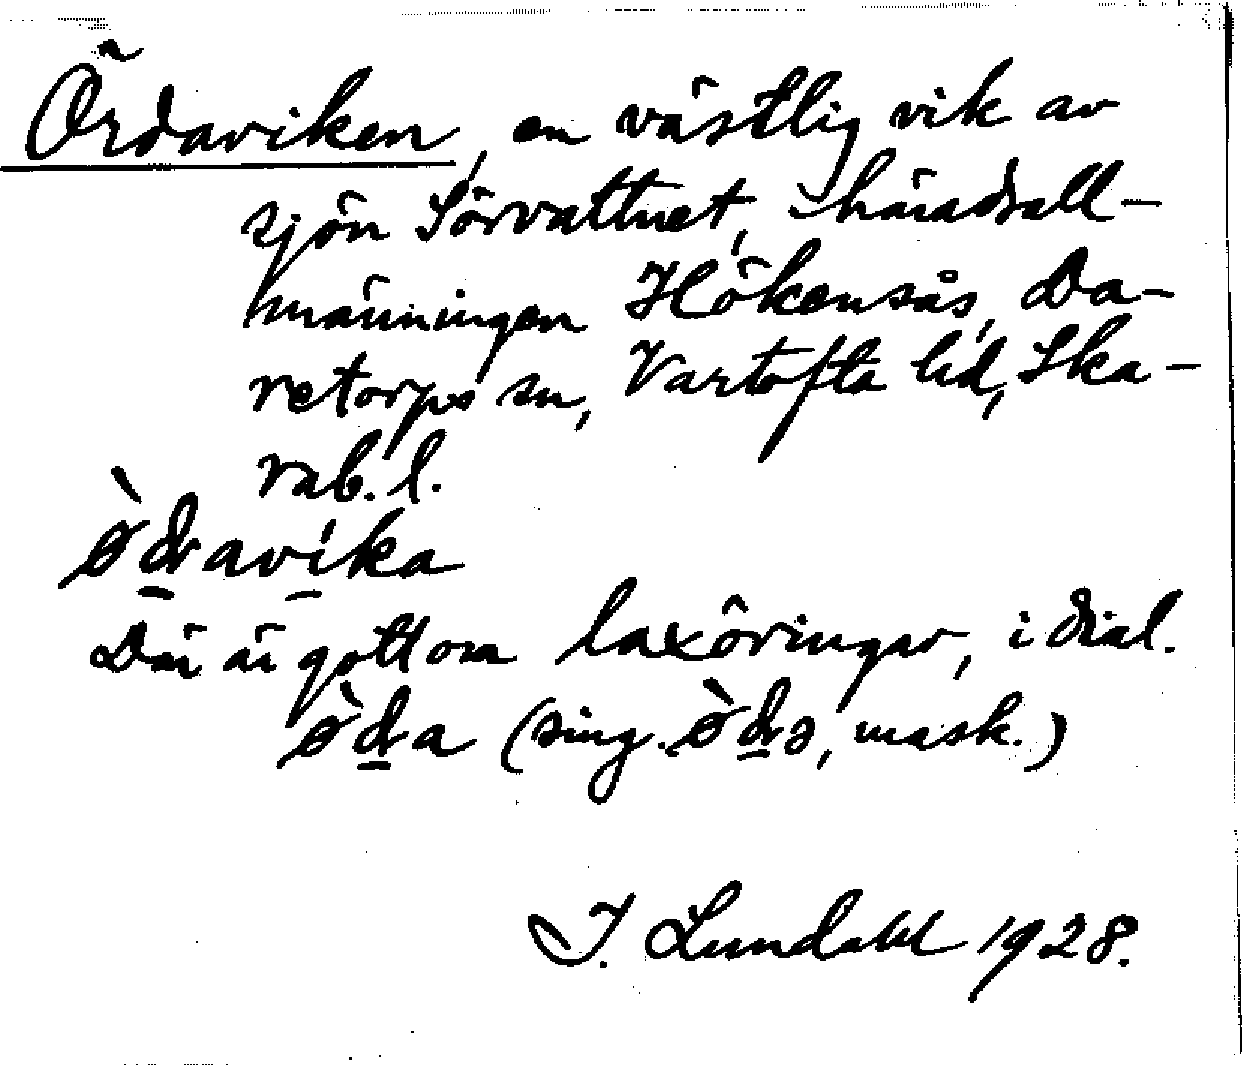 Ördaviken, en västlig vik av
sjön Sörvattnet, i häradsall-
männingen Hökensås, Da-
retorps sn, Vartofta hd, Ska-
rab. l.
ø̀d̠avi̠ka
Där är gott om laxöringar, i dial.
ø̀d̠a (sing. ø̀d̠ə, mask.)
I. Lundahl 1928.